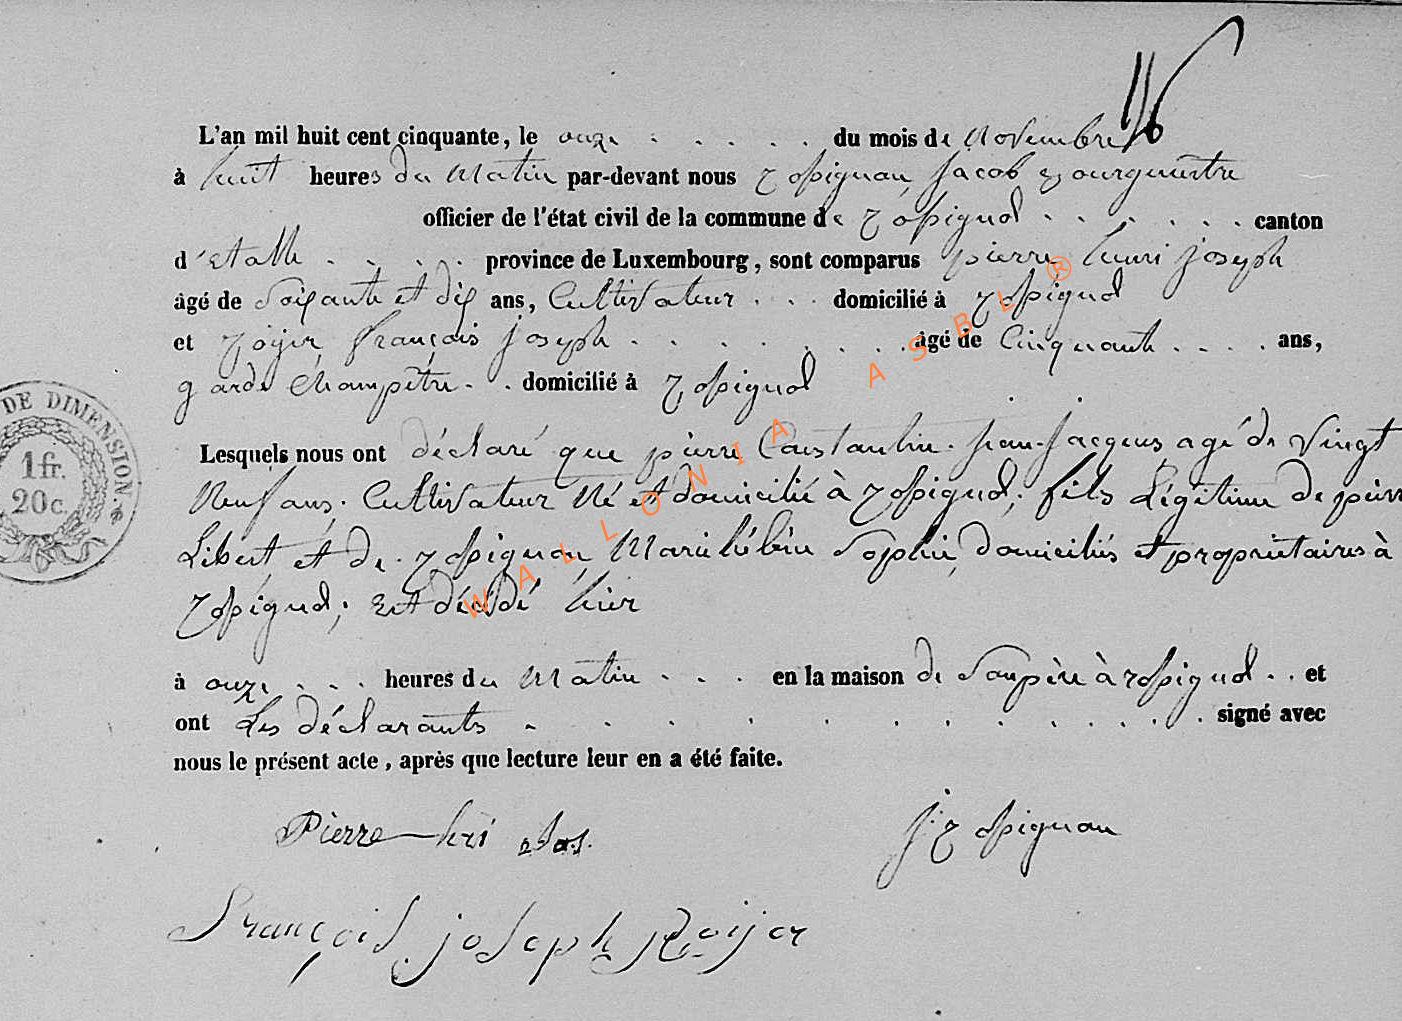 16
L'an mil huit cent cinquante, le onze . . . . . du mois de Novembre
à huit heures du Matin par-devant nous Rossignon, Jacob Bourguemêtre
officier de l'état civil de la commune de Rossignol . . . . . . canton
d'Etalle . . . . province de Luxembourg, sont comparus pierre, henri joseph
âgé de Soixante et dix ans, Cultivateur . . . domicilié à Rossignol
et Roÿer françois joseph . . . . . . . . âgé de Cinquante . . . . ans,
garde Champêtre . . domicilié à Rossignol
Lesquels nous ont déclaré que pierre Constantin jean-jacques agé de Vingt
Neuf ans. Cultivateur Né et domicilié à Rossignol; fils Légitime de pierre
Libert et de Rossignon, Marie hélène Sophie, domiciliés et propriétaires à
Rossignol; Est décédé hier
à onze . . . heures du Matin . . . en la maison de Son père à rossignol . . et
ont Les déclarants . . . . . . . . . . . . signé avec
nous le présent acte, après que lecture leur en a été faite.
Pierre hri Jos.
J. Rossignon
François joseph Roijer
DE DIMENSION.
1 fr.
20 c.
WALLONIA ASBL ®